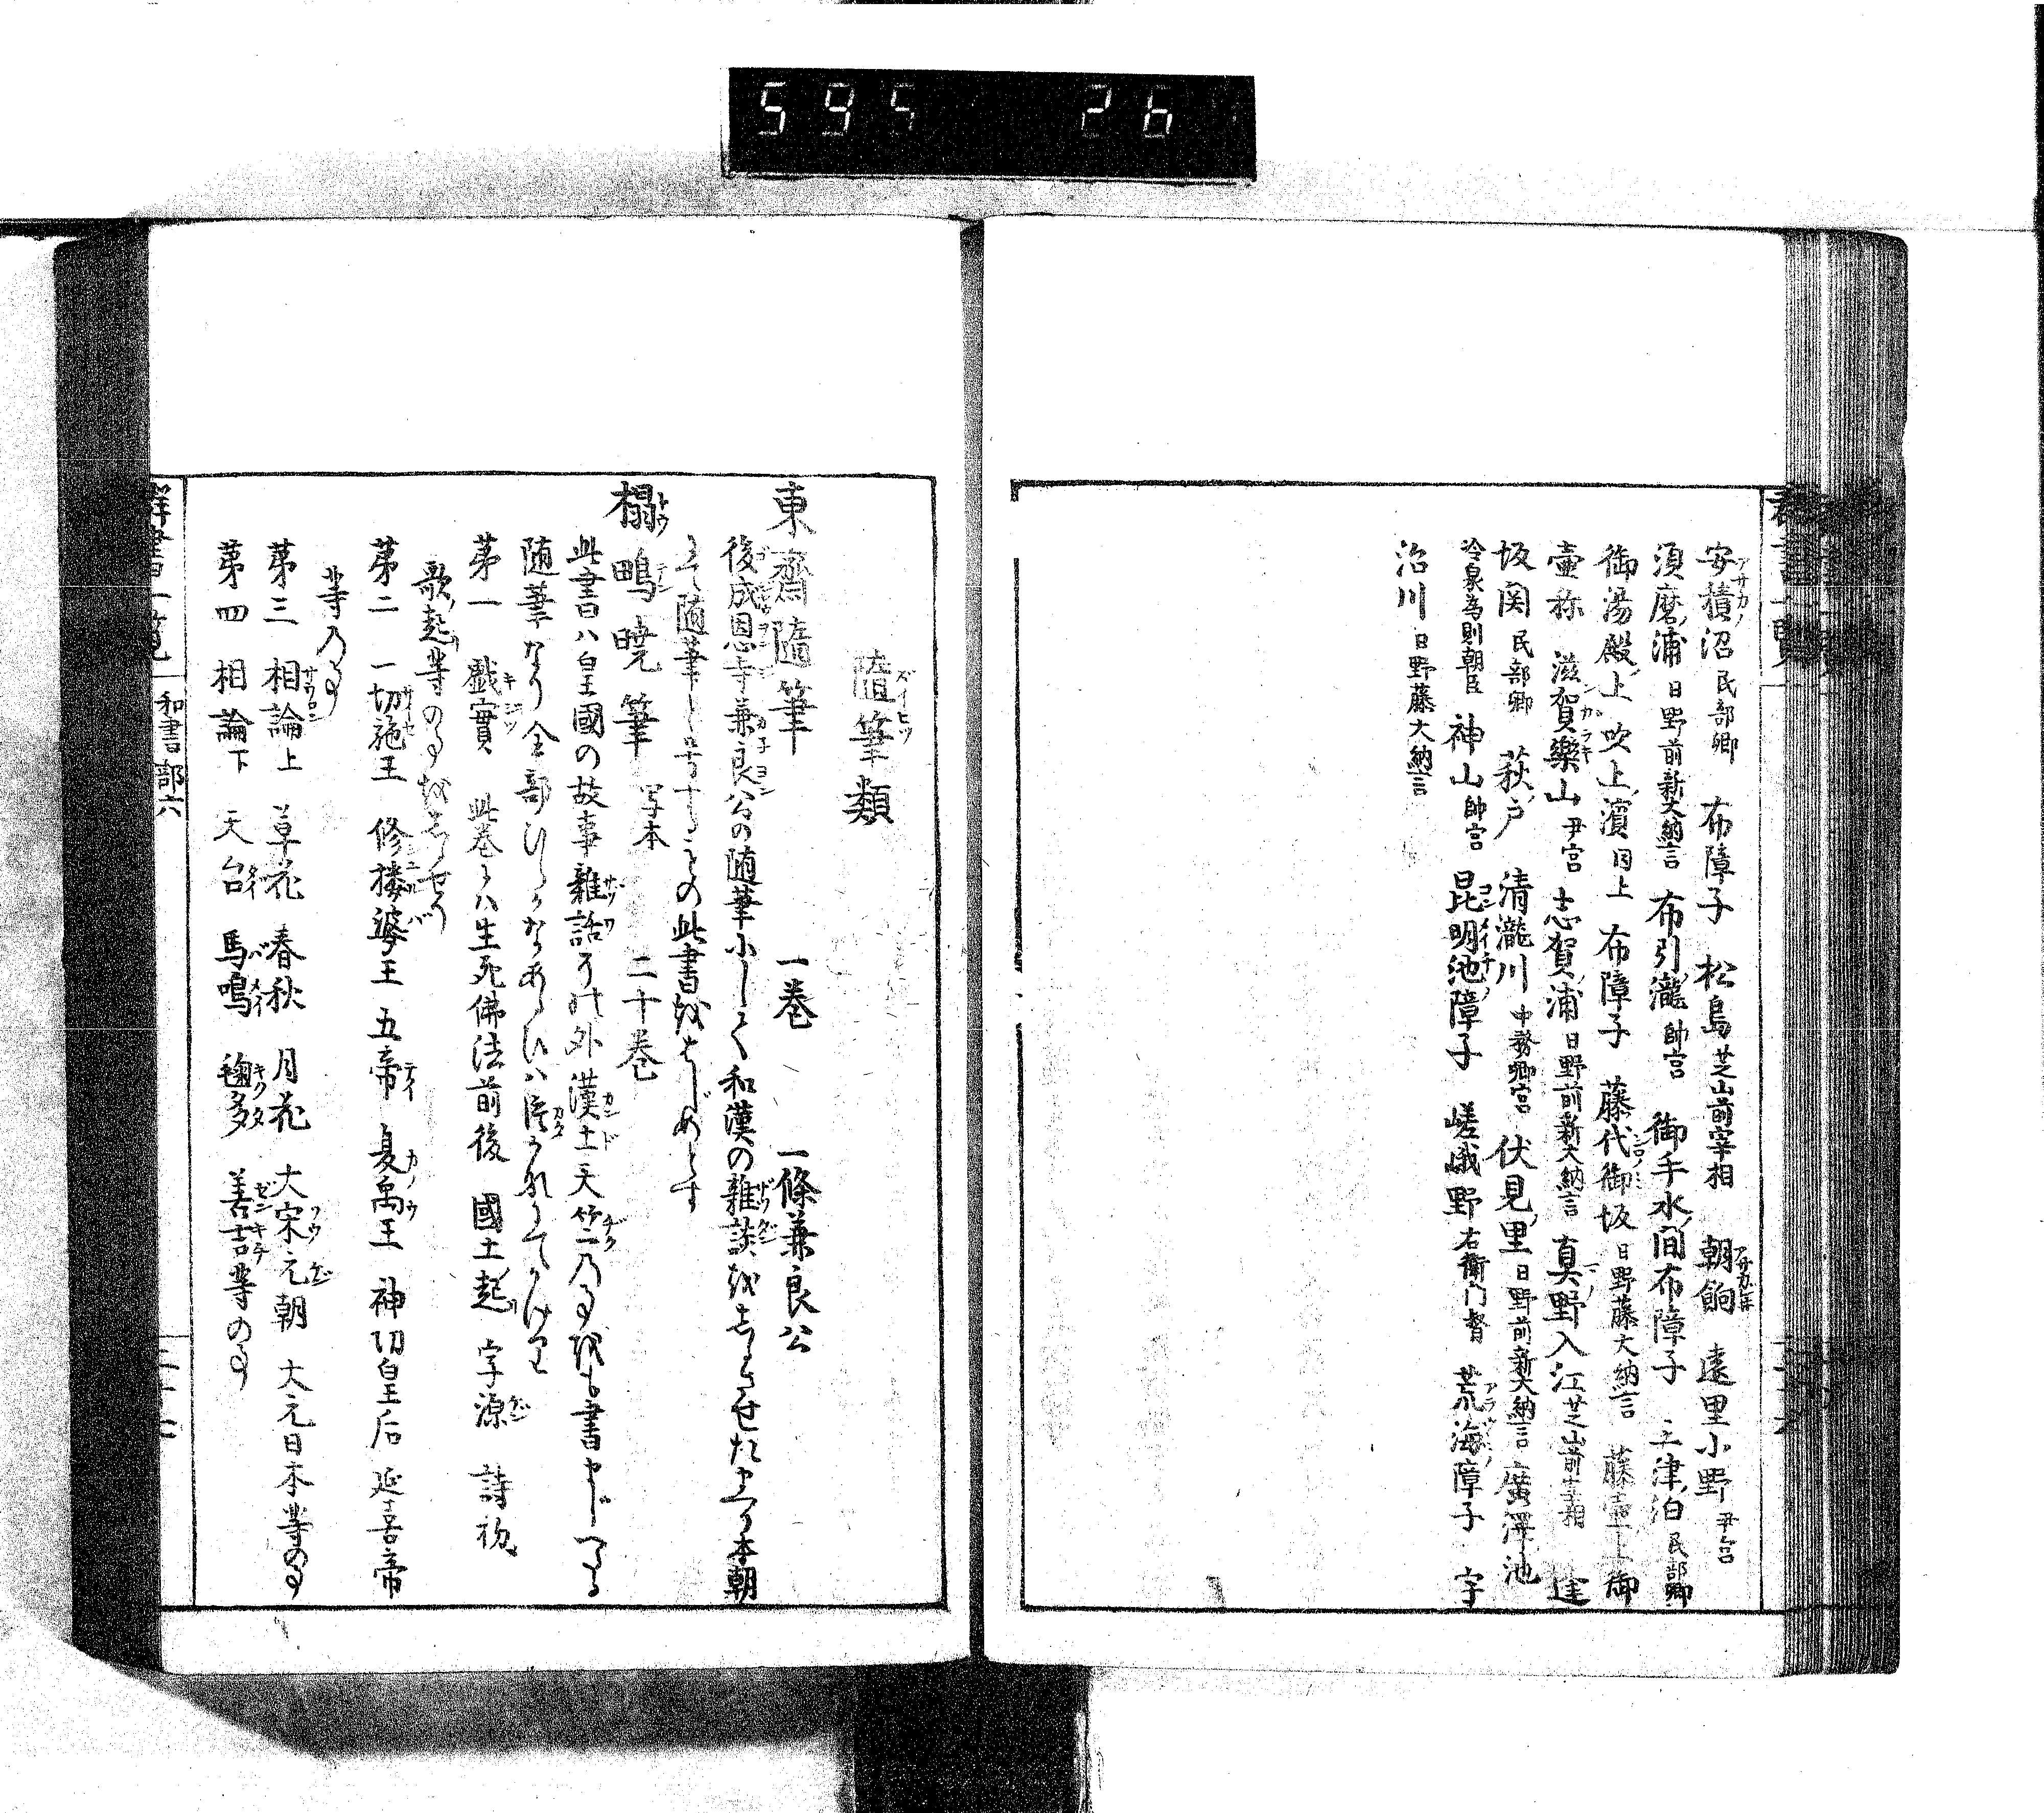 595 26
安積沼 民部卿 布障子 松島 芝山前宰相 朝餉 遠里小野 尹宮
須磨浦 日野前新大納言 布引瀧 帥宮 御手水間布障子 三津泊 民部卿
御湯殿上 吹上濱 同上 布障子 藤代御坂 日野藤大納言 藤壺上御
壷祢 滋賀樂山 尹宮 志賀浦 日野前新大納言 真野入江 芝山前宰相 逢
坂関 民部卿 萩戸 清瀧川 中務卿宮 伏見里 日野前新大納言 廣澤池
冷泉為則朝臣 神山 帥宮 昆明池障子 嵯峨野 右衛門督 荒海障子 宇
治川 日野藤大納言
隨筆類
東齋隨筆 一巻 一條兼良公
後成恩寺兼良公の随筆にして和漢の雑談をしるさせたまへり本朝
にて随筆と号するもの此書をはじめとす
榻鴫暁筆 写本 二十巻
此書ハ皇國の故事雜話その外漢土天竺乃事をも書まじへたる
随筆なり全部ひらかなあるひハ片かなにてかけり
第一 戯實 此巻にハ生死佛法前後 國土起 字源 詩初
歌起等の事をしるせり
第二 一切施王 修摟婆王 五帝 夏禹王 神功皇后 延喜帝
等乃事
第三 相論上 草花 春秋 月花 大宋元朝 大元日本等の事
第四 相論下 天台 馬鳴 毱多 善吉等の事
群書一覧 和書部六